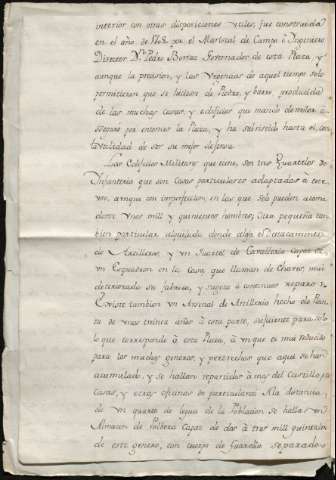 interior con otras disposiciones utiles, fue construida
en el año de 1708 por el Mariscal de Campo è Ingeniero
Director Dn. Pedro Borras Governador de esta Plaza y
aunque la precision, y las Urgencias de aquel tiempo solo
permitieron que se hiciese de Piedra, y barro producido
de las muchas casas, y edificios que mandò demoler à
por entonces la Plaza, y ha subsistido hasta el con
utilidad de ser su mejor defensa.
Los Edificios Militares que tiene, son tres Quarteles de
Infanteria que son casas particulares adaptadas à este
uso, aunque con imperfeccion, en las que solo pueden
vnos mill y quinientos hombres, Otra pequeña tam
bien particular alquilada donde aloja el Destacamento
de Artilleros y vn Quartel de Cavalleria capaz de
vn Esquadron en la Casa que llaman de Chaves, mui
deteriorado su fabrica, y sugeto à continuos reparos.
Existe tambien vn Arsenal de Artilleria hecho de Plan
ta de unos treinta años à esta parte, suficiente para solo
lo que corresponde à esta Plaza, à vn que es mui reducido
para los muchos generos, y pertrechos que aqui se han
acumulado, y se hallan repartidos à mas del Castillo, en
casas, y otras oficinas de particulares. A la distancia
de vn quarto de legua de la Poblacion se halla vn
Almacen de Polvora Capaz de dos à tres mill quintales
de este genero, con cuerpo de Guardia separado